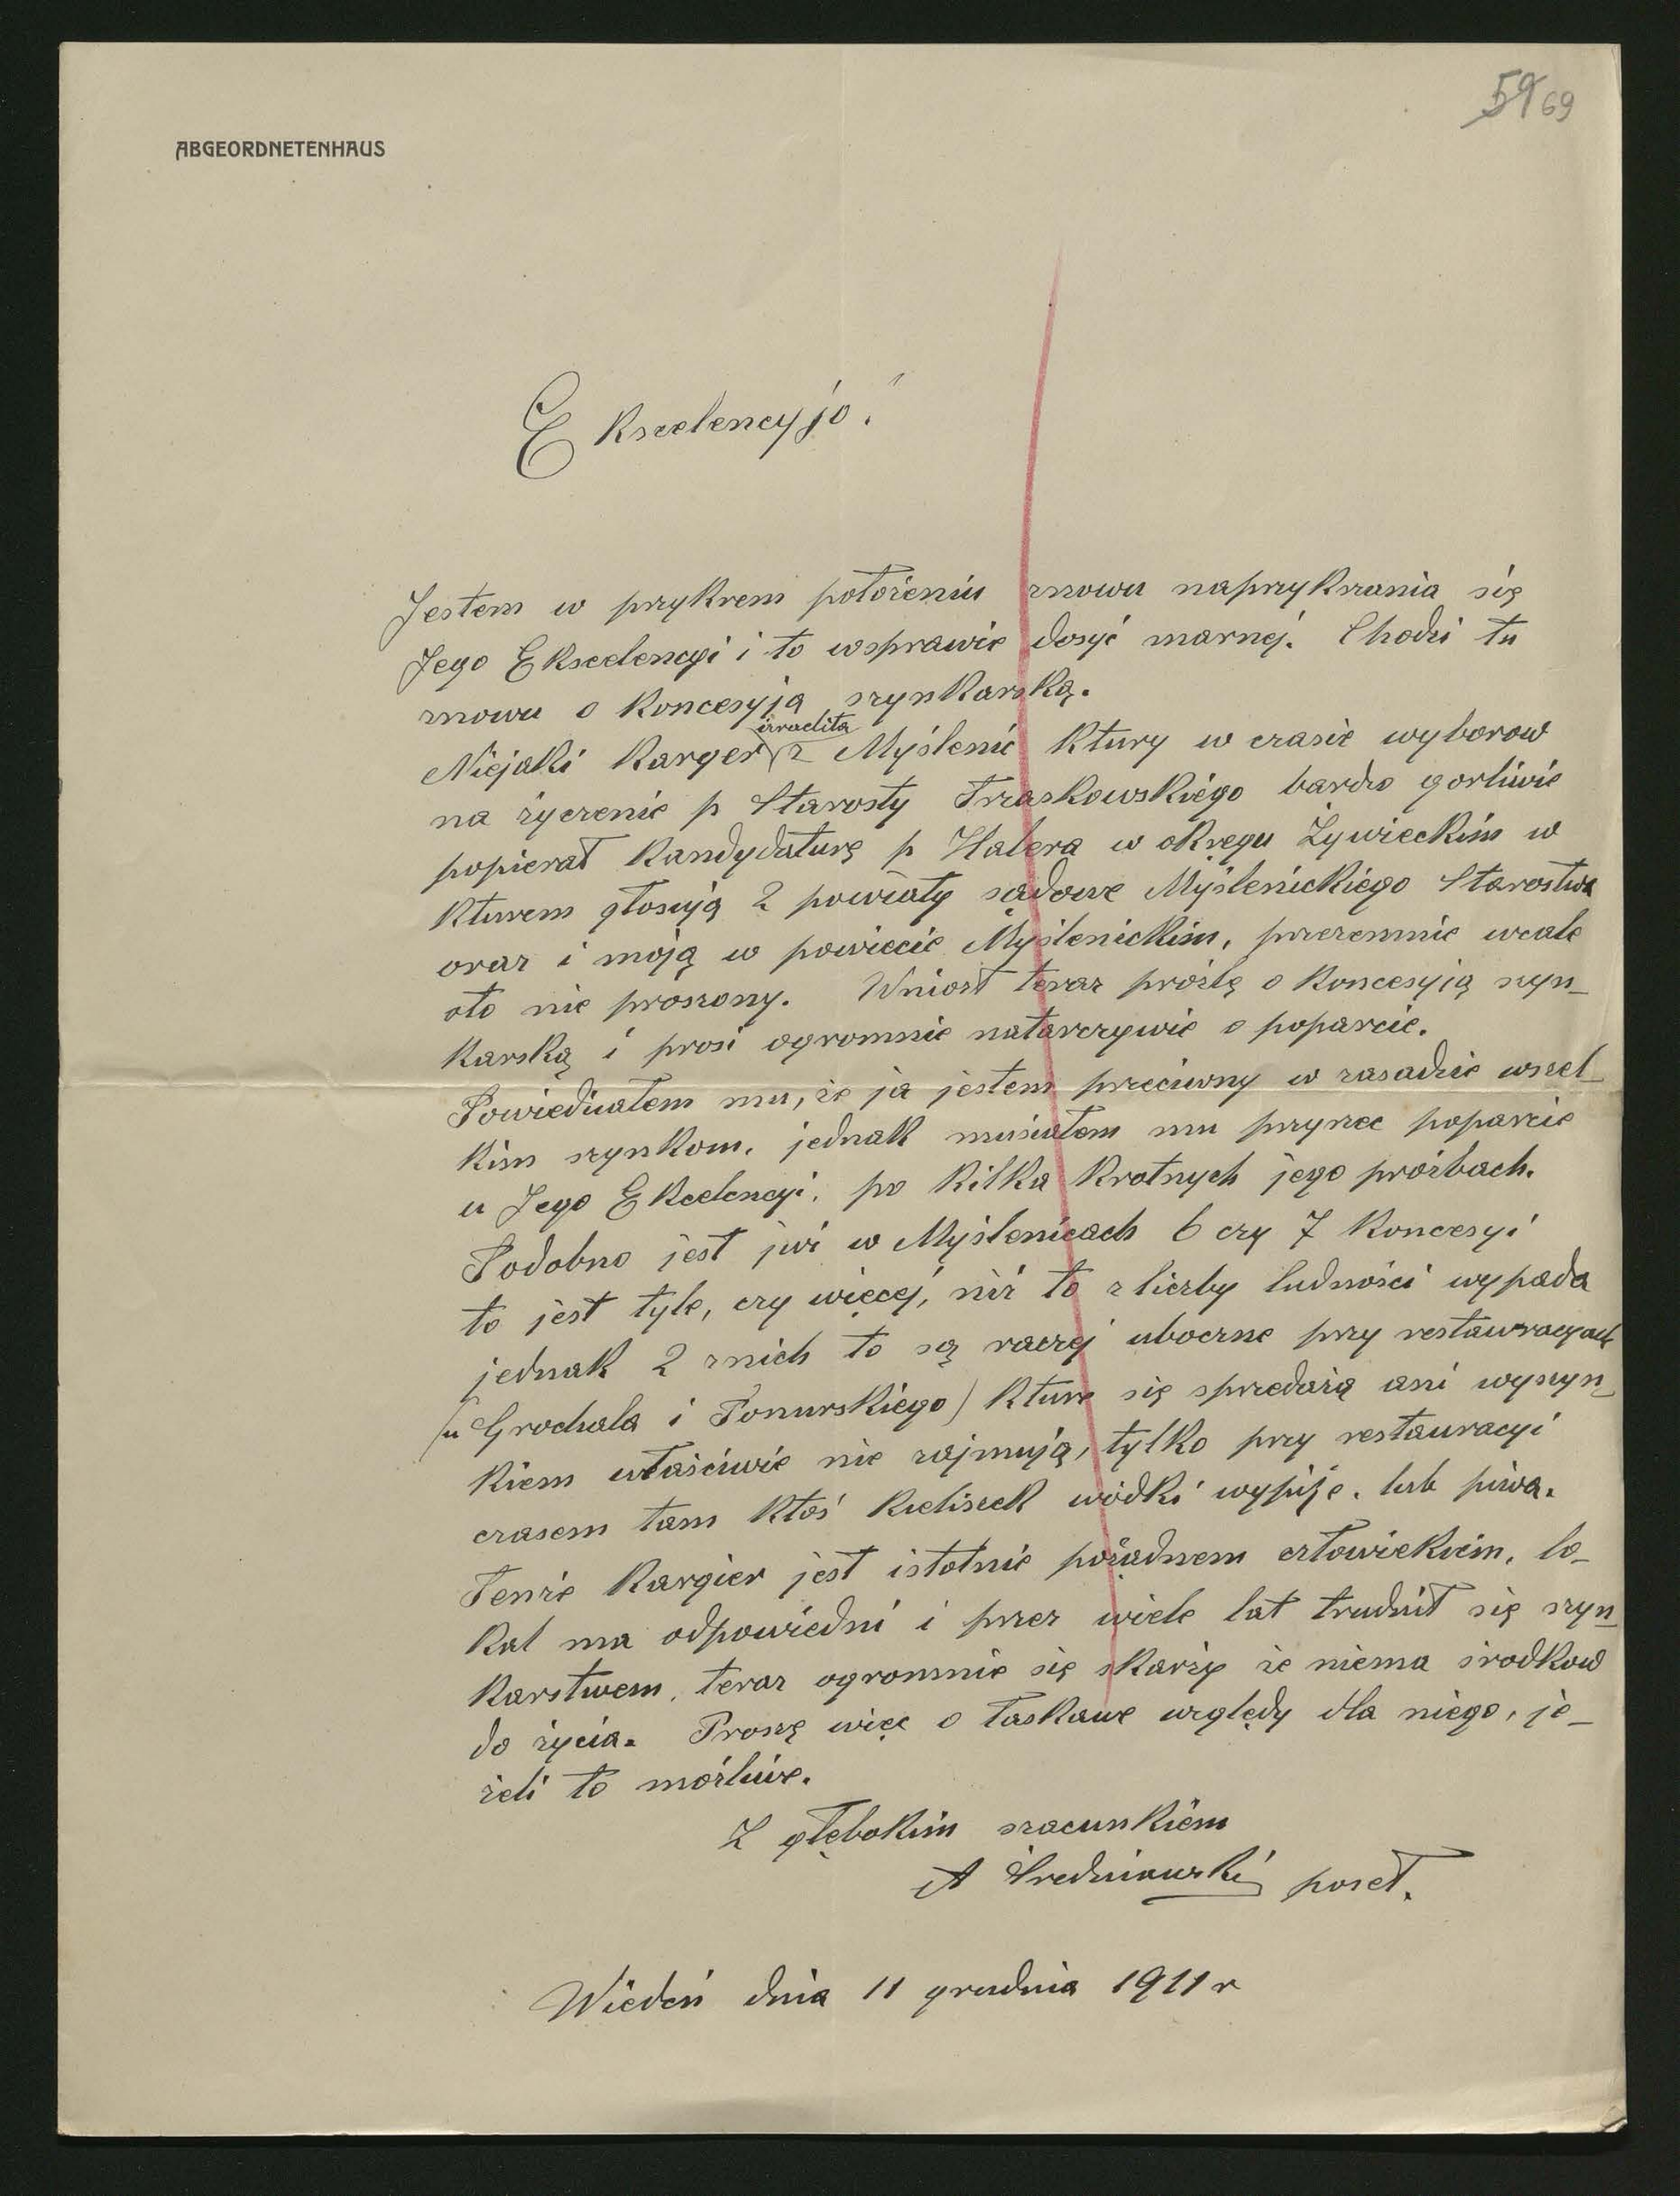 59 69
ABGEORDNETENHAUS
Ekscelencyjo!
Jestem w przykrem położeniu znowu naprzykrzania się
Jego Ekscelencyi i to wsprawie dosyć marnej. Chodzi tu
znowu o koncesyją szynkarską.
izraelita
Niejaki Karger z Myślenic ktury w czasie wyborow
na życzenie p Starosty Trzaskowskiego bardzo gorliwie
popierał kandydaturę p Halera w okręgu Żywieckim w
kturem głosują 2 powiaty sądowe Myślenickiego Starostwa
oraz i moją w powiecie Myślenickim, przezemnie wcale
oto nie proszony. Wniosł teraz prożbę o koncesyją szyn_
karską i prosi ogromnie natarczywie o poparcie.
Powiedziałem mu, że ja jestem przeciwny w zasadzie wszel_
kim szynkom, jednak musiałem mu przyrzec poparcie
u Jego Ekcelencyi, po kilka krotnych jego prożbach.
Podobno jest już w Myślenicach 6 czy 7 koncesyi
to jest tyle, czy więcej, niż to z liczby ludności wypada
jednak 2 znich to są raczej uboczne przy restauracyach
(u Grochala i Ponurskiego) kture się sprzedażą ani wyszyn_
kiem właściwie nie zajmują, tylko przy restauracyi
czasem tam ktoś kieliszek wódki wypije, lub piwa.
Tenże Kargier jest istotnie pożądnem człowiekiem, lo_
kal ma odpowiedni i przez wiele lat trudnił się szyn_
karstwem, teraz ogromnie się skarży że niema środkow
do życia. Proszę więc o łaskawe względy dla niego, je_
żeli to możliwe.
Z głębokim szacunkiem
A Średniawski poseł.
Wiedeń dnia 11 grudnia 1911 r